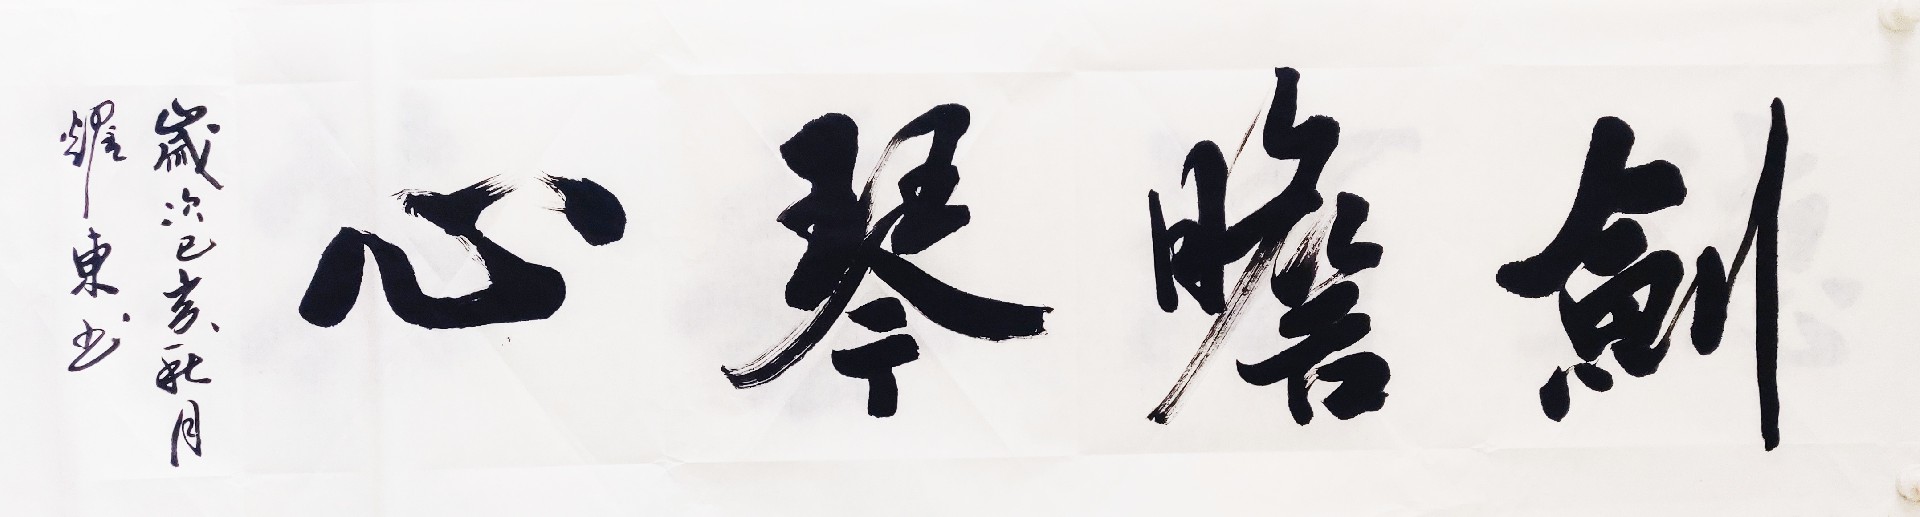 劍膽琴心
歲次己亥秋月
耀東书